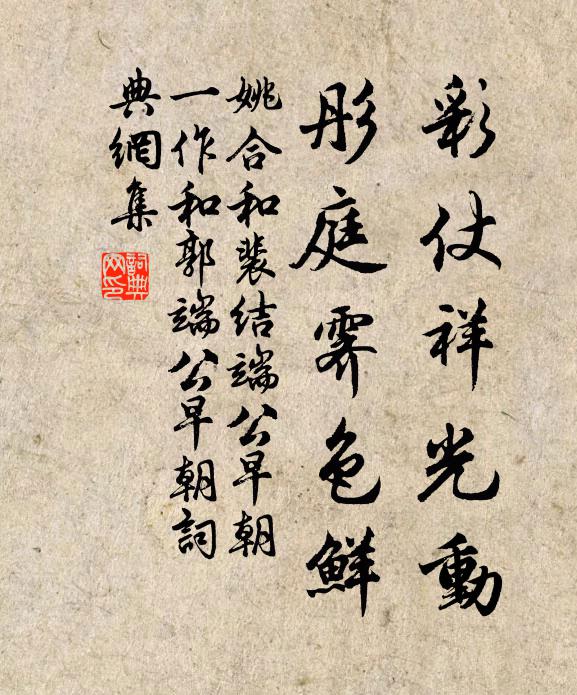 彩仗祥光動
彤庭霽色鮮
姚合和裴结端公早朝
一作和郭端公早朝詞
典網集
詞典網印